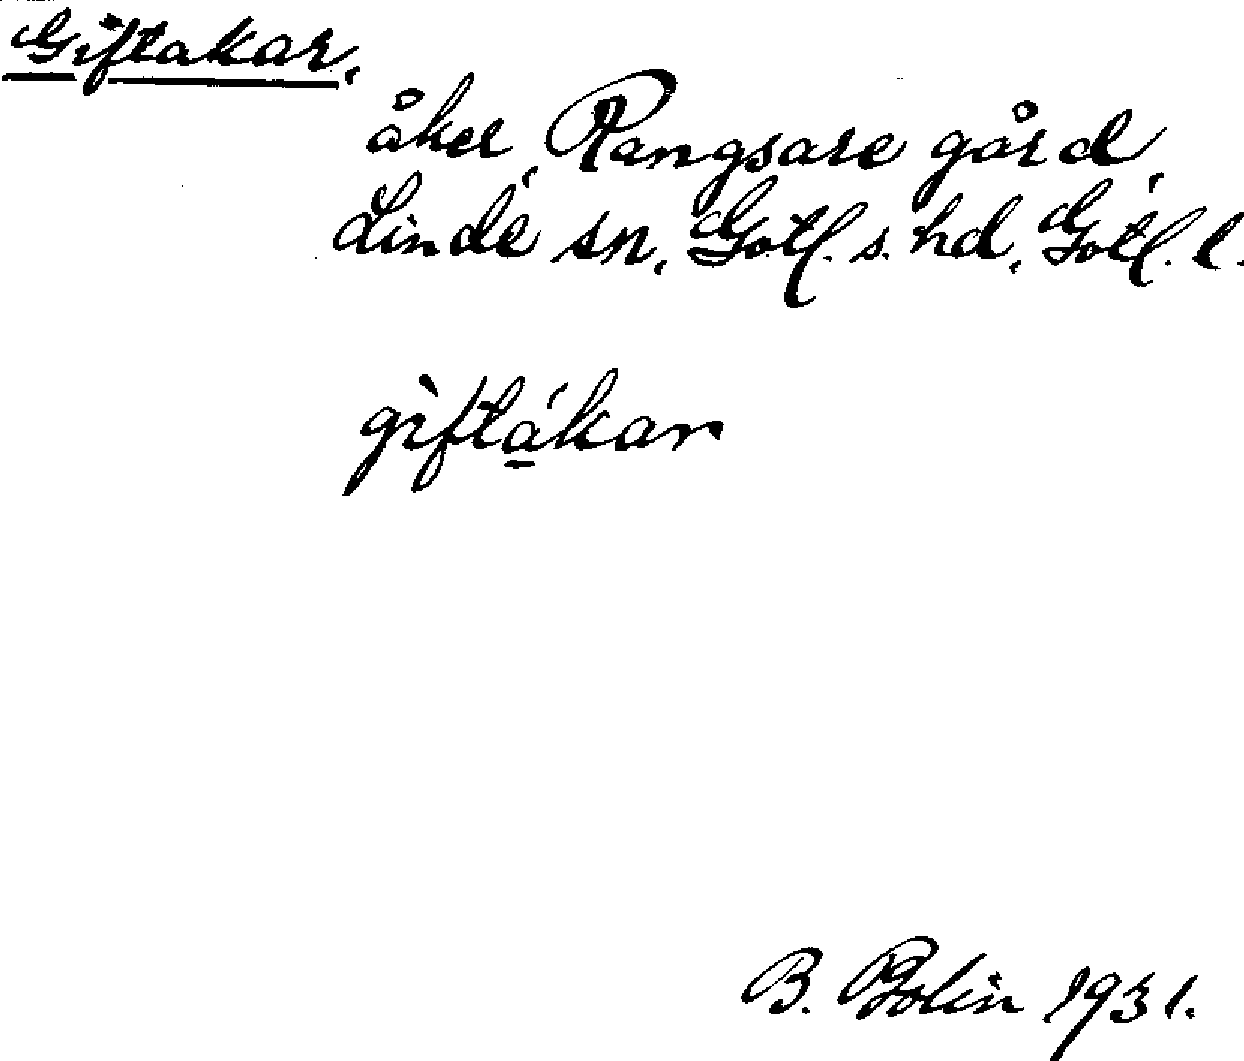 Giftakar,
åker, Rangsare gård,
Linde sn, Gotl. s. hd, Gotl. l.
gìftákar
B. Bolin 1931.